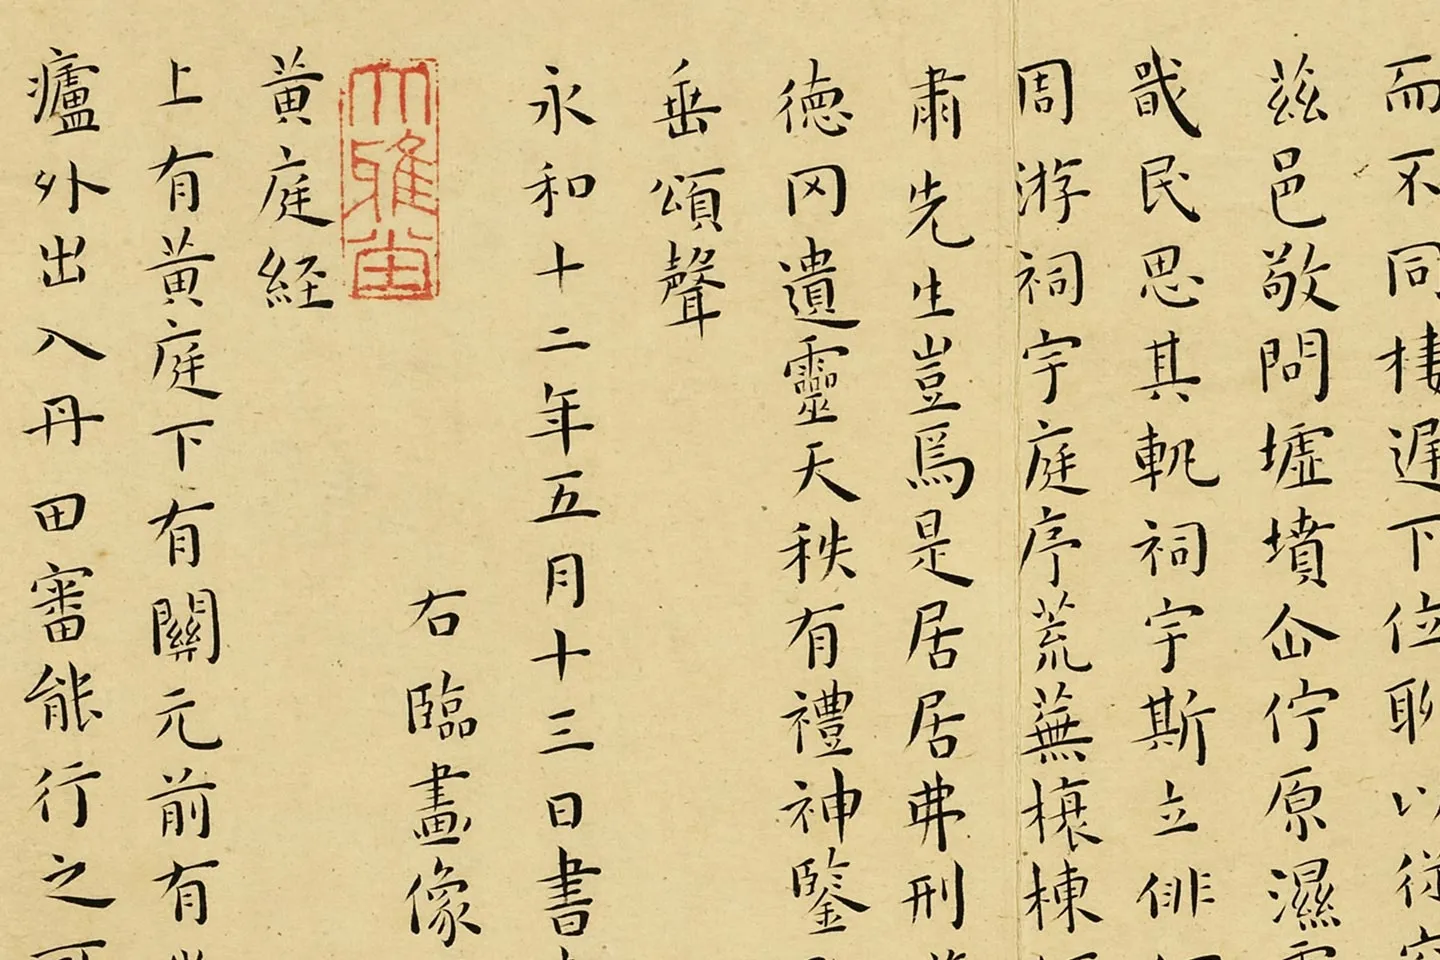 而不同棲遲下位聊以從容
茲邑敬問墟墳企佇原濕
戢民思其軌祠宇斯立俳
周游祠宇庭序荒蕪榱棟
肅先生豈焉是居居弗刑
德冈遺靈天秩有禮神鑒
垂頌聲
永和十二年五月十三日書
右臨畫像
大雅堂
黃庭経
上有黃庭下有關元前有
廬外出入丹田審能行之可